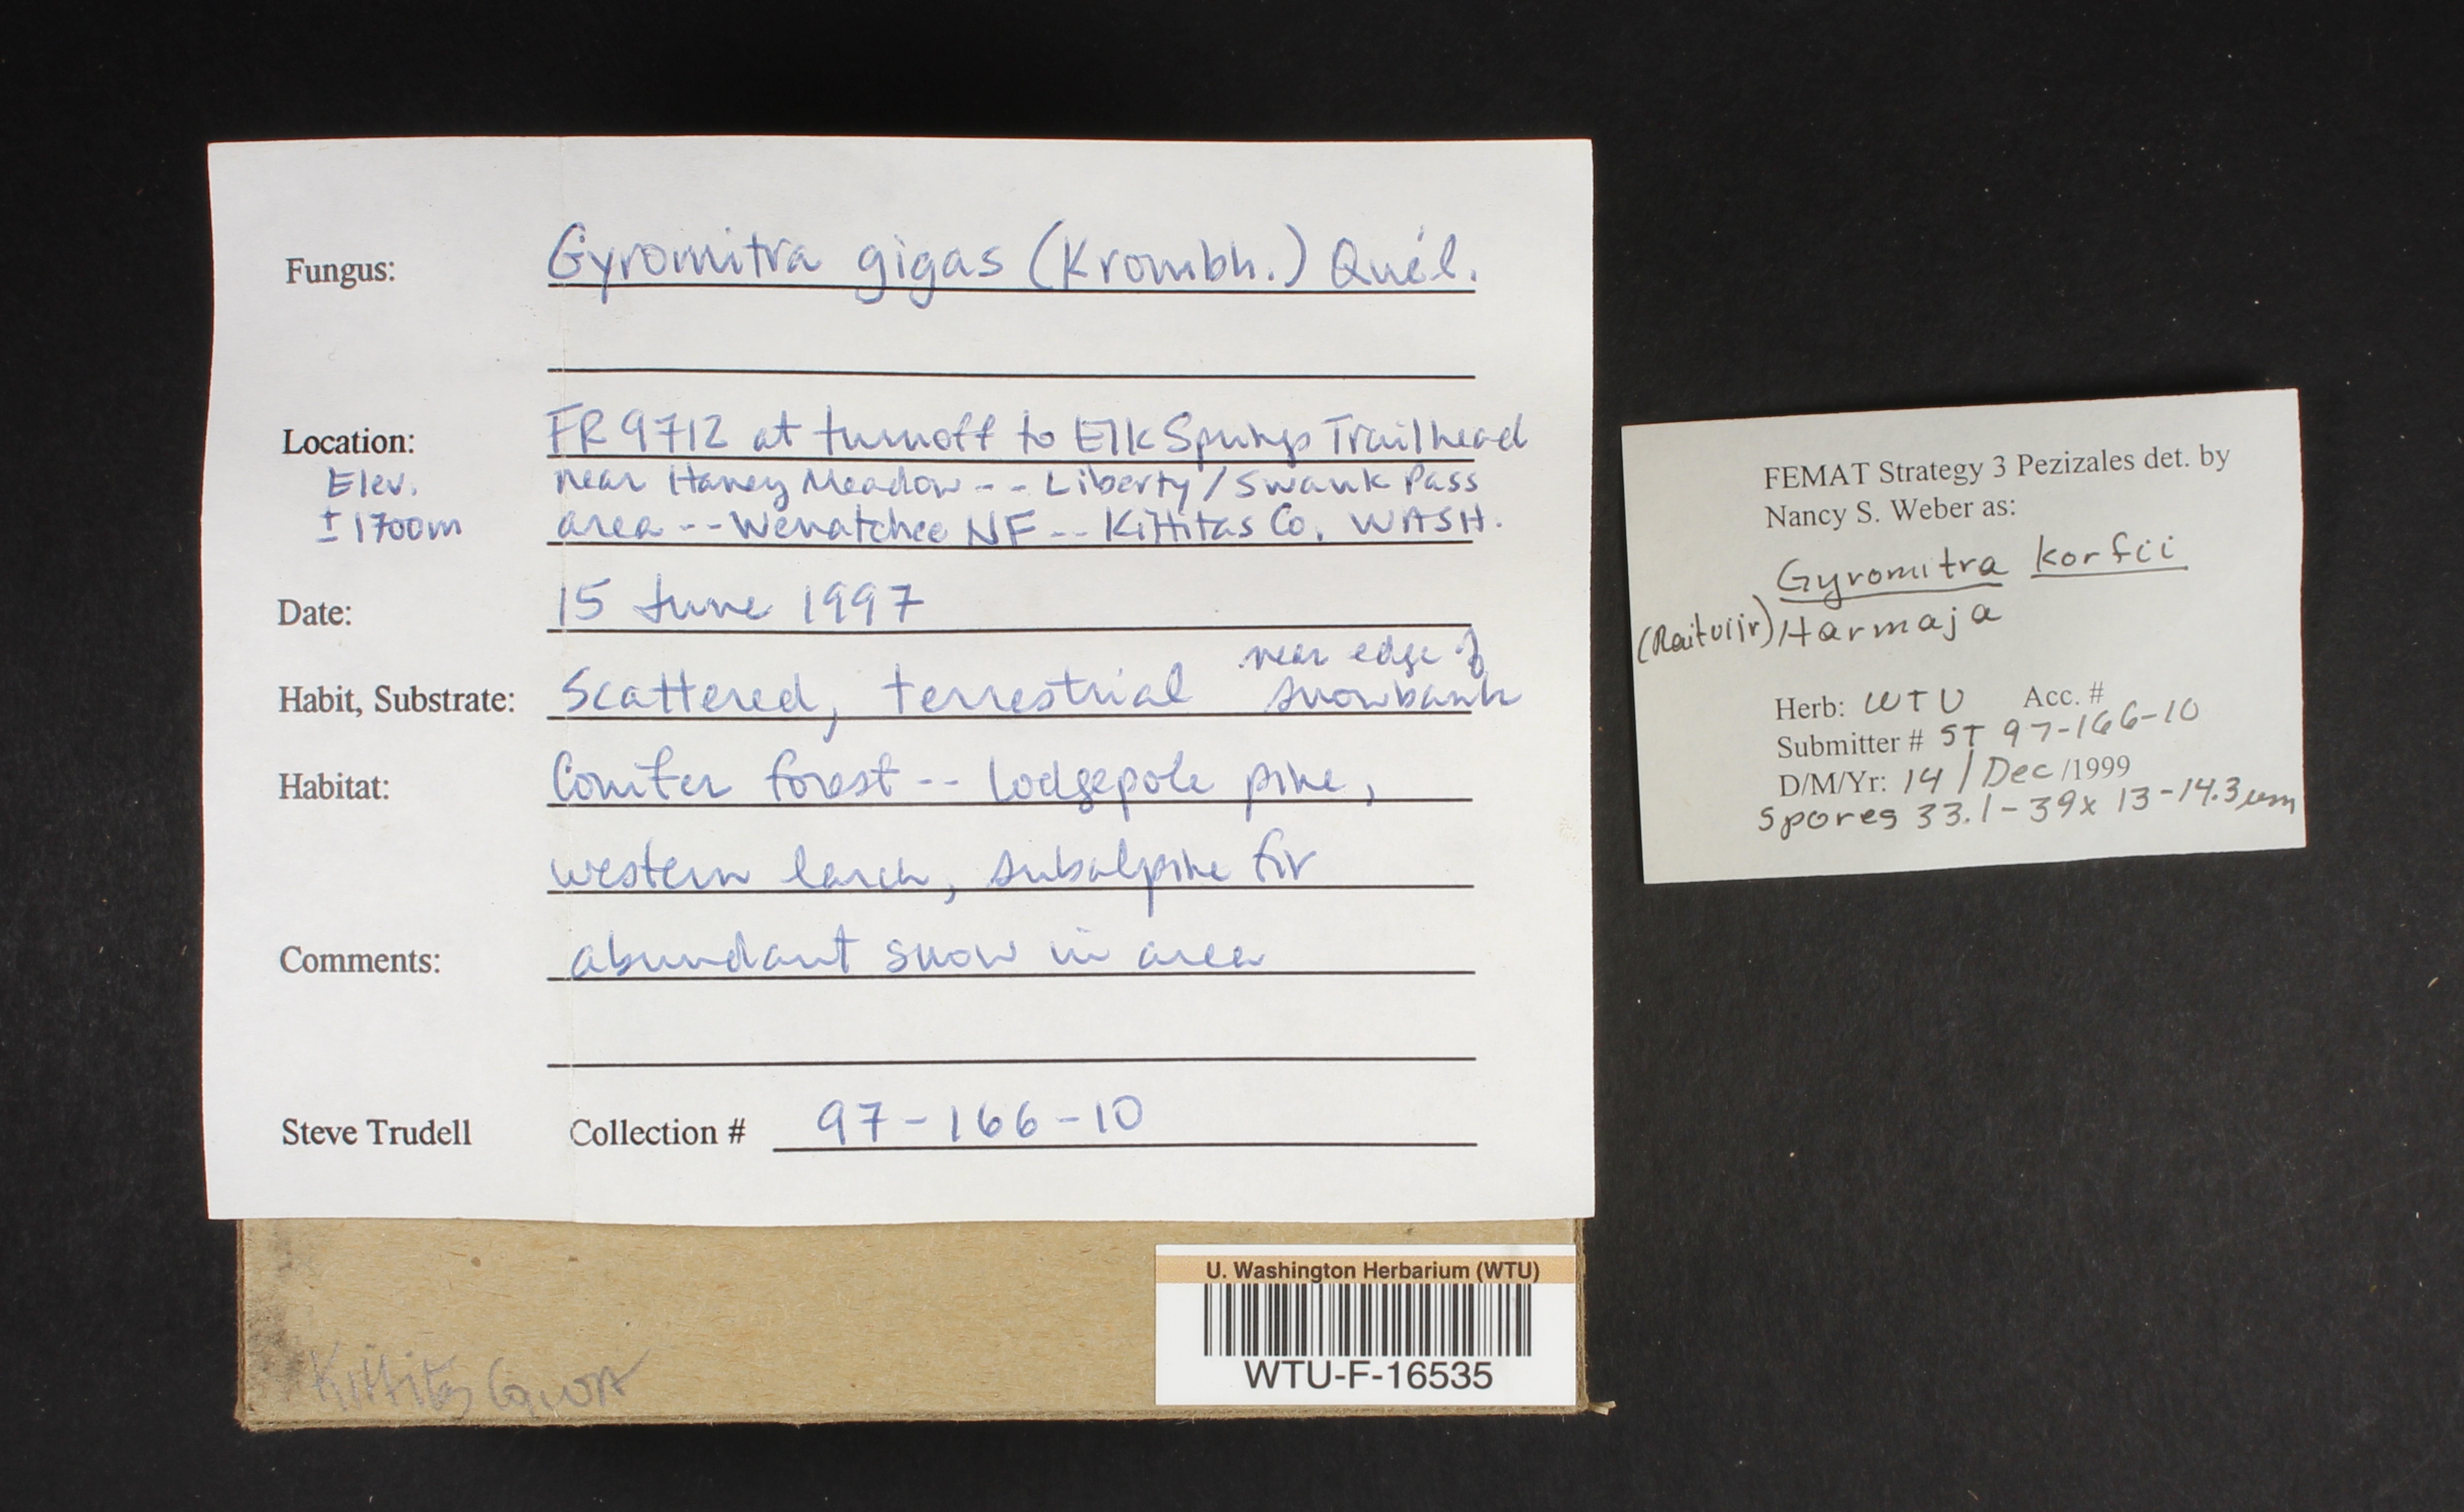 Fungus: Gyromitra gigas (Krombh.) Quél.
Location: FR 9712 at turnoff to Elk Springs Trailhead
Elev. near Haney Meadow -- Liberty / Swauk Pass
± 1700m area -- Wenatchee NF -- Kittitas Co. WASH.
Date: 15 June 1997
near edge of
Habit, Substrate: Scattered, terrestrial snowbank
Habitat: Conifer forest -- lodgepole pine,
western larch, subalpine fir
Comments: abundant snow in area
Steve Trudell Collection # 97-166-10
Kittitas Co, WA
U. Washington Herbarium (WTU)
WTU-F-16535
FEMAT Strategy 3 Pezizales det. by
Nancy S. Weber as:
Gyromitra korfii
(Raitviir) Harmaja
Herb: WTU Acc. #
Submitter # ST 97-166-10
D/M/Yr: 14 / Dec /1999
Spores 33.1-39x 13-14.3 µm